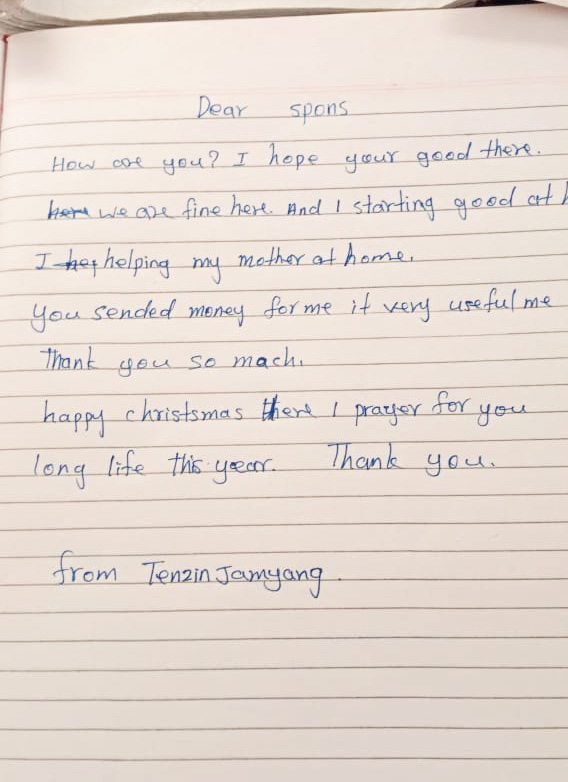 Dear spons
How are you? I hope your good there.
here we are fine here. And I starting good at h
I hep helping my mother at home.
you sended money for me it very useful me
Thank you so mach.
happy christsmas there I prayer for you
long life this year. Thank you.
from Tenzin Jamyang.